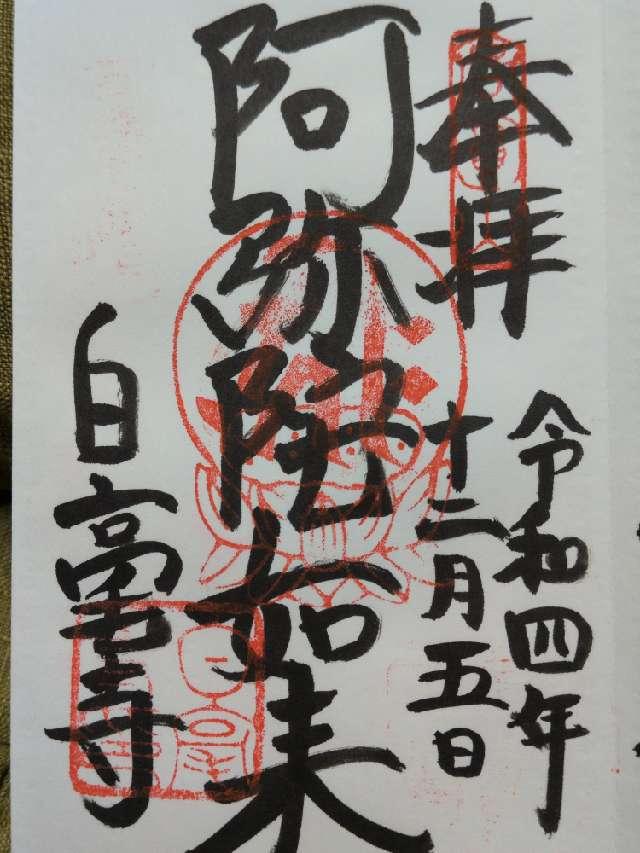 奉拝
令和四年
十二月五日
阿弥陀如来
白毫寺